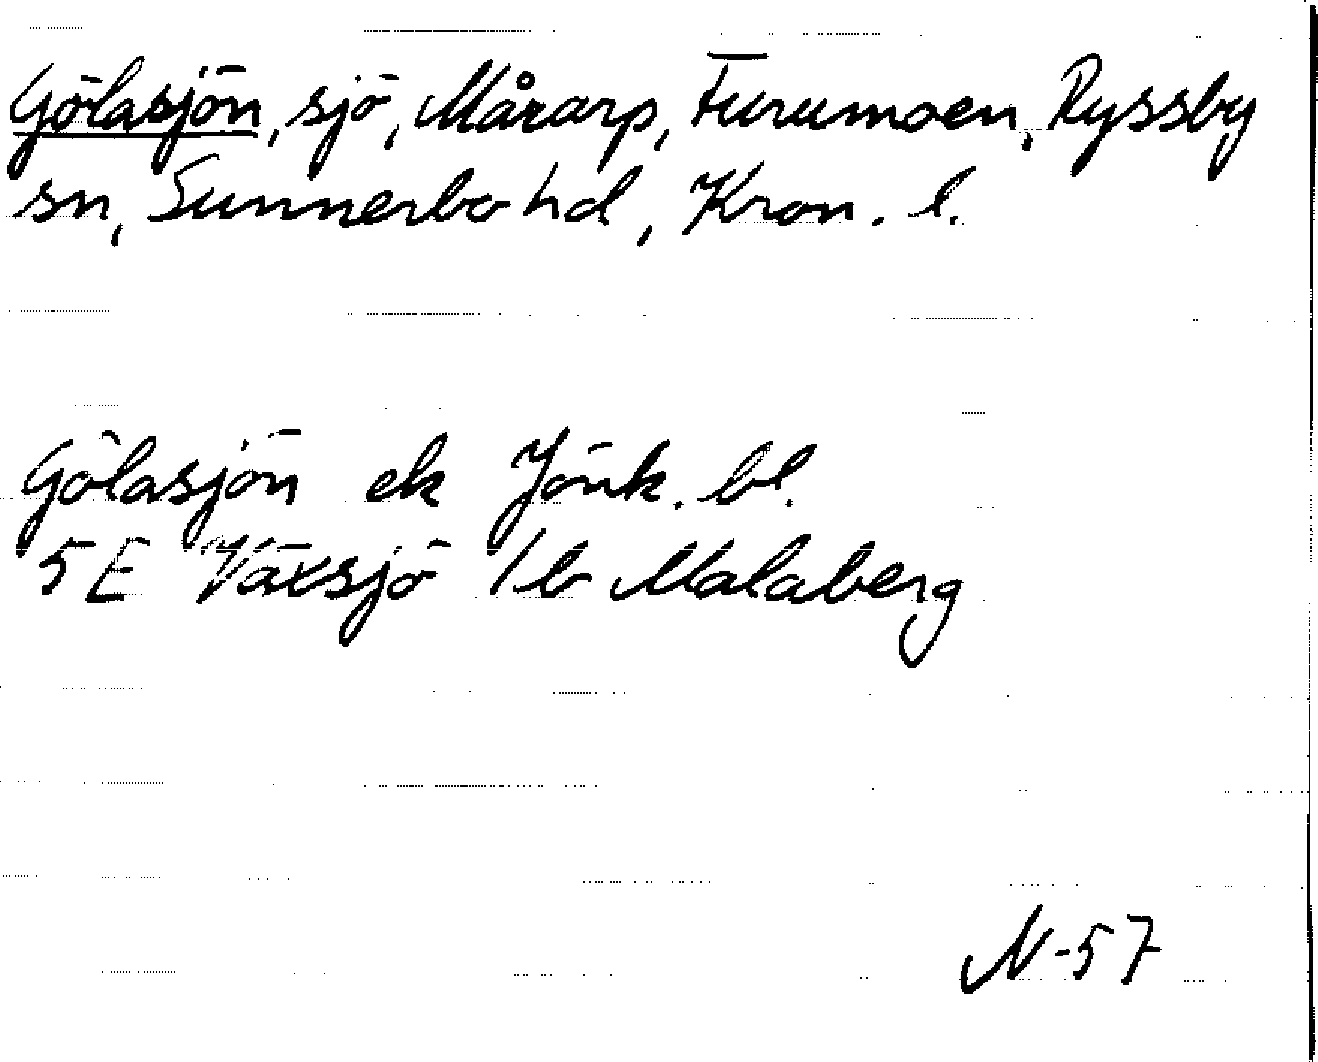 Gölasjön, sjö, Mårarp, Furumoen, Ryssby
sn, Sunnerbo hd, Kron. l.
Gölasjön ek Jönk. bl.
5E Växsjö 1b Malaberg
N-57